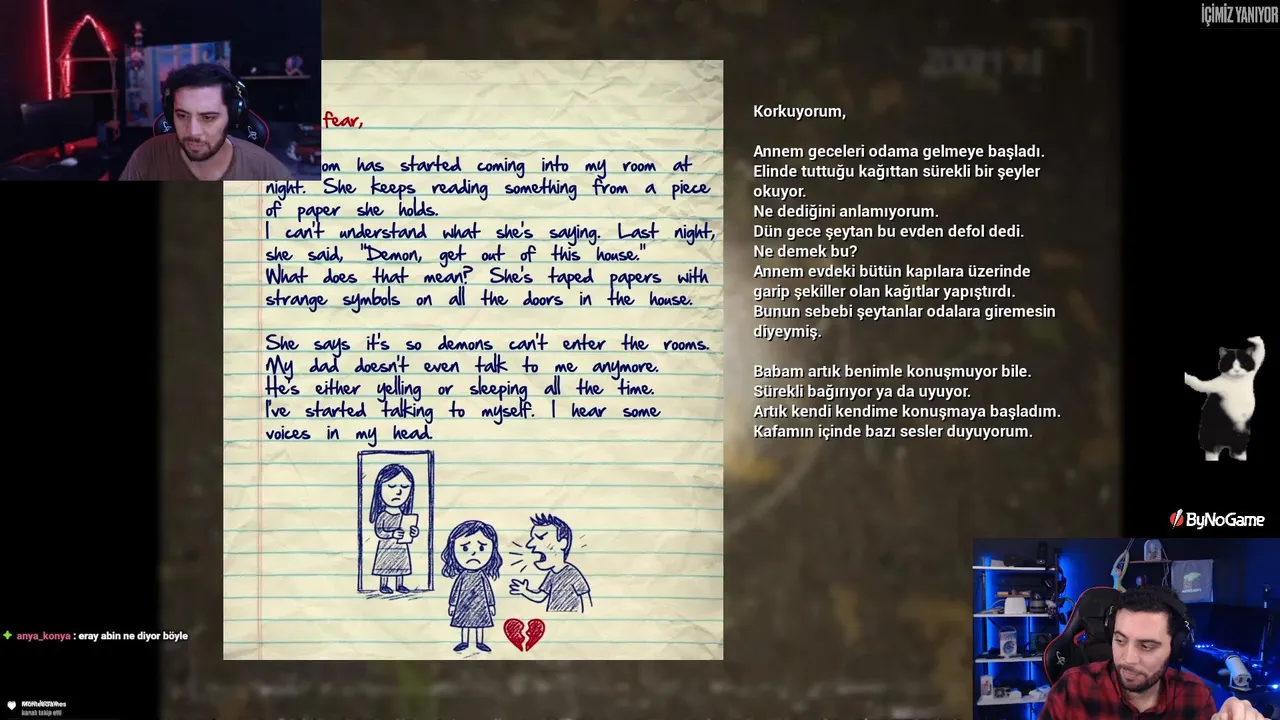 İÇİMİZ YANIYOR
fear,
om has started coming into my room at
night. She keeps reading something from a piece
of paper she holds.
I can't understand what she's saying. Last night,
she said, "Demon, get out of this house."
What does that mean? She's taped papers with
strange symbols on all the doors in the house.
She says it's so demons can't enter the rooms.
My dad doesn't even talk to me anymore.
He's either yelling or sleeping all the time.
I've started talking to myself. I hear some
voices in my head.
Korkuyorum,
Annem geceleri odama gelmeye başladı.
Elinde tuttuğu kağıttan sürekli bir şeyler
okuyor.
Ne dediğini anlamıyorum.
Dün gece şeytan bu evden defol dedi.
Ne demek bu?
Annem evdeki bütün kapılara üzerinde
garip şekiller olan kağıtlar yapıştırdı.
Bunun sebebi şeytanlar odalara giremesin
diyeymiş.
Babam artık benimle konuşmuyor bile.
Sürekli bağırıyor ya da uyuyor.
Artık kendi kendime konuşmaya başladım.
Kafamın içinde bazı sesler duyuyorum.
ByNoGame
anya_konya : eray abin ne diyor böyle
kanalı takip etti